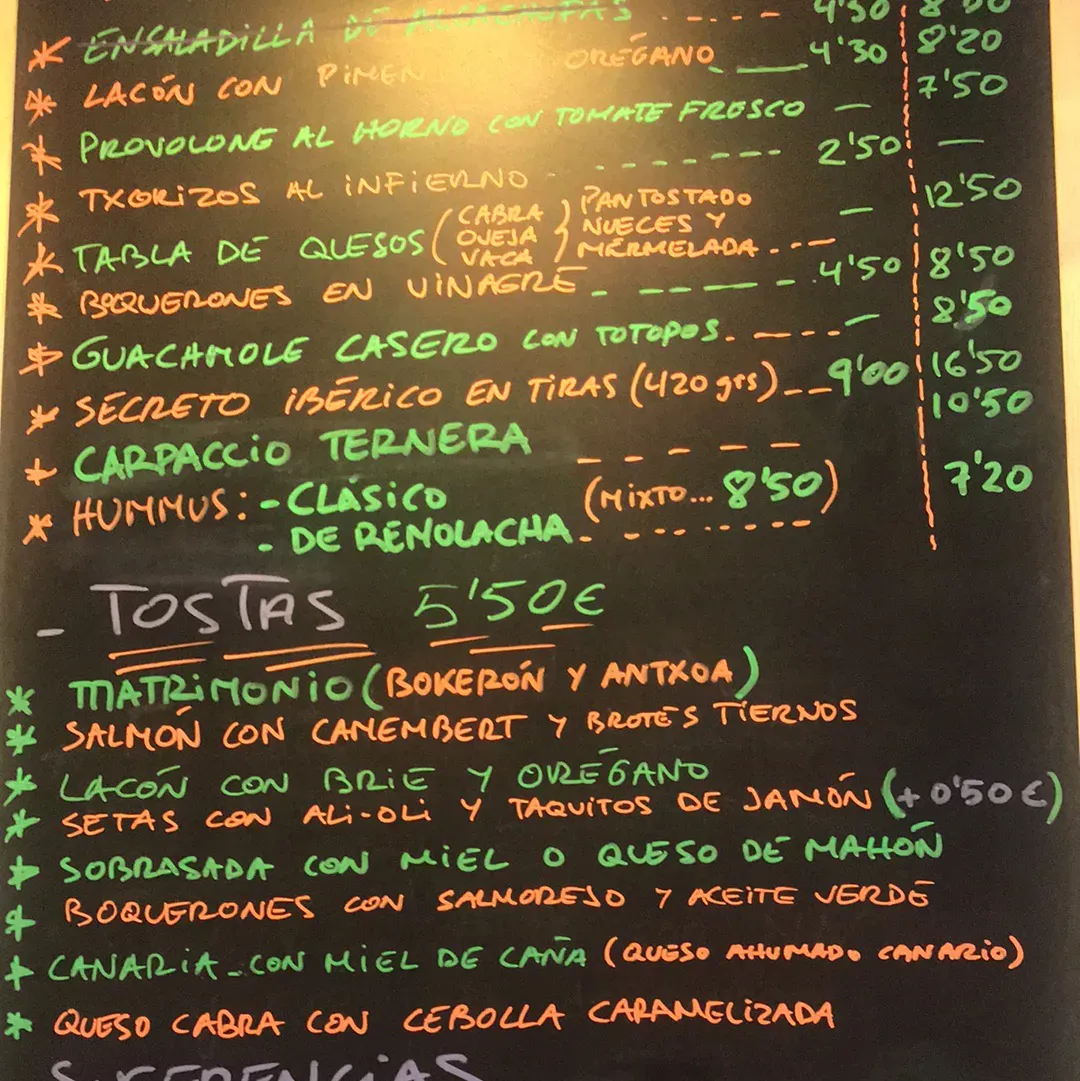 * ENSALADILLA DE ALCACHOFAS ----- 4'50 8'00
* LACÓN CON PIMEN ORÉGANO ___ 4'30 8'20
* PROVOLONE AL HORNO CON TOMATE FRESCO — 7'50
* TXORIZOS AL INFIERNO ------- 2'50 —
* TABLA DE QUESOS (CABRA OVEJA VACA) PAN TOSTADO NUECES Y MERMELADA --- — 12'50
* BOQUERONES EN VINAGRE ------ 4'50 8'50
* GUACAMOLE CASERO CON TOTOPOS ----- — 8'50
* SECRETO IBÉRICO EN TIRAS (420 grs) -- 9'00 16'50
* CARPACCIO TERNERA ----- 10'50
* HUMMUS: - CLÁSICO (MIXTO... 8'50) 7'20
- DE REMOLACHA -------
- TOSTAS 5'50€
* MATRIMONIO (BOKERÓN Y ANTXOA)
* SALMÓN CON CAMEMBERT Y BROTES TIERNOS
* LACÓN CON BRIE Y ORÉGANO
* SETAS CON ALI-OLI Y TAQUITOS DE JAMÓN (+0'50€)
* SOBRASADA CON MIEL O QUESO DE MAHÓN
* BOQUERONES CON SALMOREJO Y ACEITE VERDE
* CANARIA - CON MIEL DE CAÑA (QUESO AHUMADO CANARIO)
* QUESO CABRA CON CEBOLLA CARAMELIZADA
SUGERENCIAS